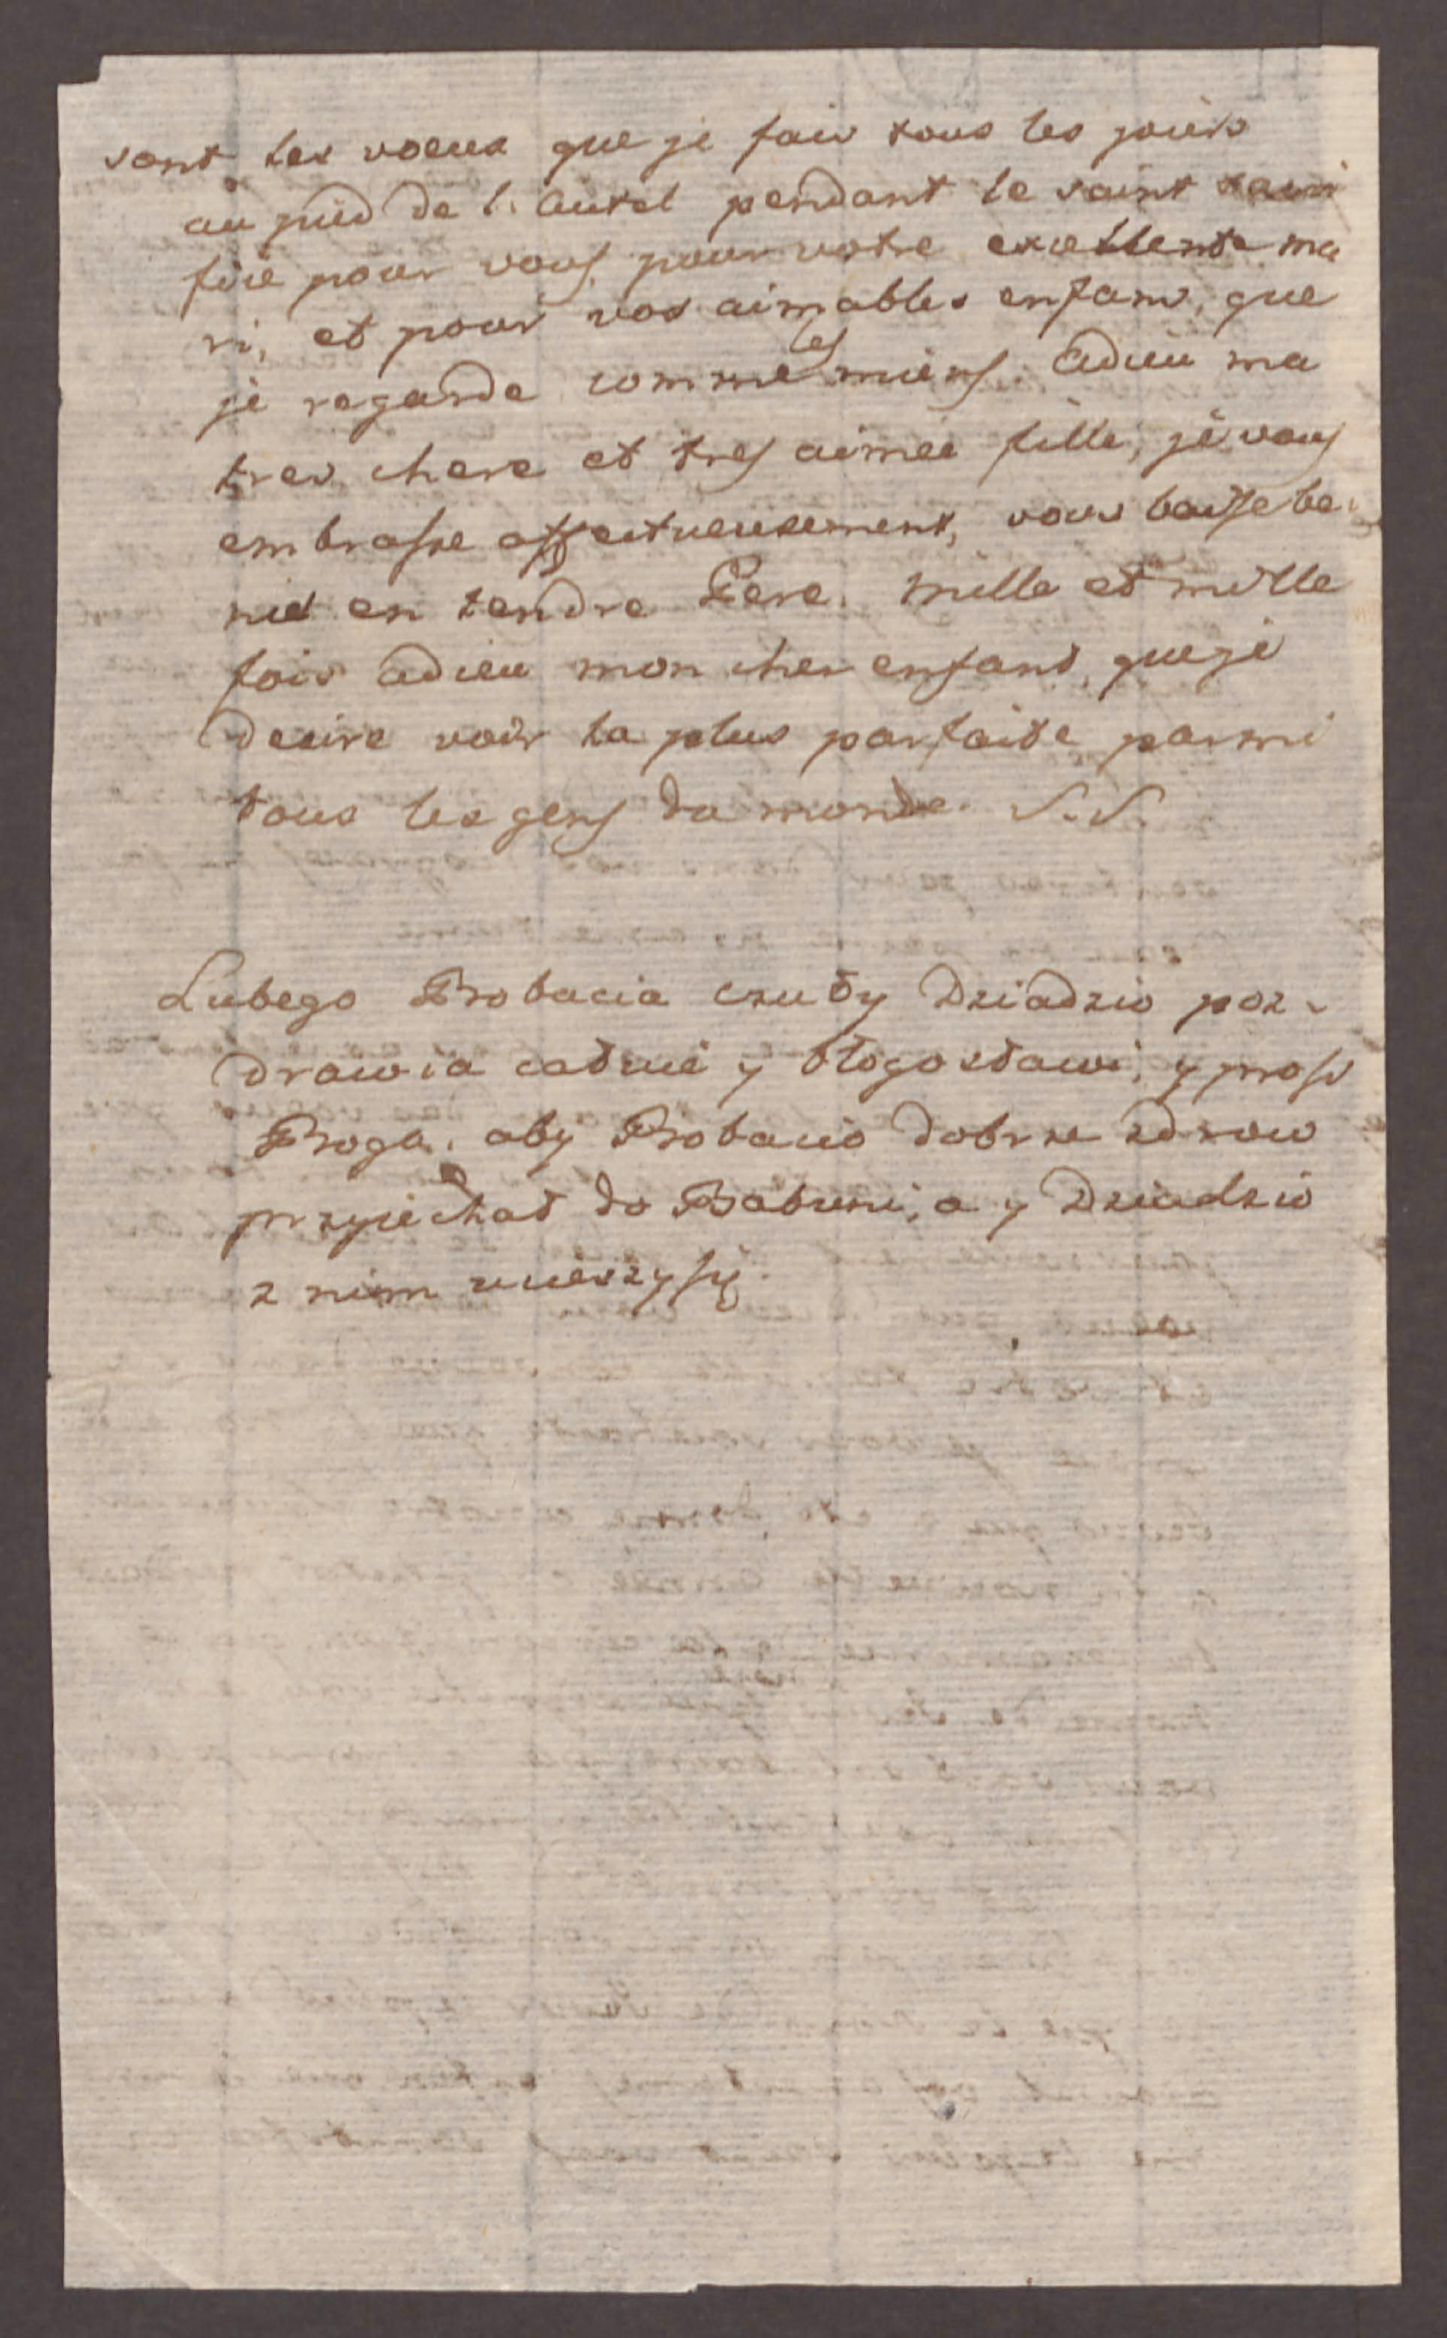 sont les voeux que je fais tous les jours
au pied de l'autel pendant le saint sacri
fice pour vous, pour votre excellente ma
ri, et pour vos aimables enfans, que
je regarde comme les miens. adieu ma
tres chere et tres aimée fille, je vous
embrasse affectueusement, vous baise be
nis en tendre Pere. mille et mille
fois adieu mon cher enfant, que je
desire voir la plus parfaite parmi
tous les gens du monde. S.S.
Lubego Bobacia czuły Dziadzio poz-
drawia całuie y błogosławi, y prosi
Boga. aby Bobacio dobrze zdrow
przyiechał do Babuni, a y Dziadzio
z nim ucieszy się.